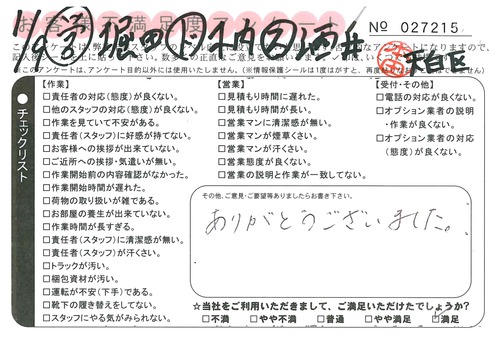 お客様不満足度アンケート
11/9 堀田 木内 酒井
№ 027215
天白区
記入後
※このアンケートは、アンケート目的以外には使用いたしません。(※情報保護シールは1度がすと、再度
チェックリスト
【作業】
□責任者の対応(態度)が良くない。
□他のスタッフの対応(態度)が良くない。
□作業を見ていて不安がある。
□責任者(スタッフ)に好感が持てない。
□お客様への挨拶が出来ていない。
□ご近所への挨拶・気遣いが無い。
□作業開始前の内容確認がなかった。
□作業開始時間が遅れた。
□荷物の取り扱いが雑である。
□お部屋の養生が出来ていない。
□作業時間が長すぎる。
□責任者(スタッフ)に清潔感が無い。
□責任者(スタッフ)が汗くさい。
□トラックが汚い。
□梱包資材が汚い。
□運転が不安(下手)である。
□靴下の履き替えをしてない。
□スタッフにやる気がみられない。
【営業】
□見積もり時間に遅れた。
□見積もり時間が長い。
□営業マンに清潔感が無い。
□営業マンが煙草くさい。
□営業マンが汗くさい。
□営業態度が良くない。
□営業の説明と作業が一致してない。
【受付・その他】
□電話の対応が良くない。
□オプション業者の説明
・作業が良くない。
□オプション業者の対応
(態度)が良くない。
その他、ご意見・ご要望等ありましたらお書き下さい。
ありがとうございました。
☆当社をご利用いただきまして、ご満足いただけたでしょうか?
□不満 □やや不満 □普通 □やや満足 □満足